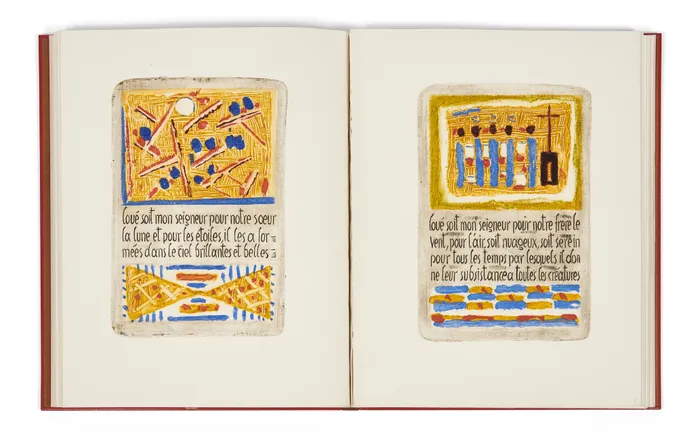 loué soit mon seigneur pour notre sœur
la lune et pour les étoiles, il les a for
mées dans le ciel brillantes et belles
loué soit mon seigneur pour notre frère le
vent, pour l'air, soit nuageux, soit serein
pour tous les temps par lesquels il don
ne leur subsistance a toutes les créatures